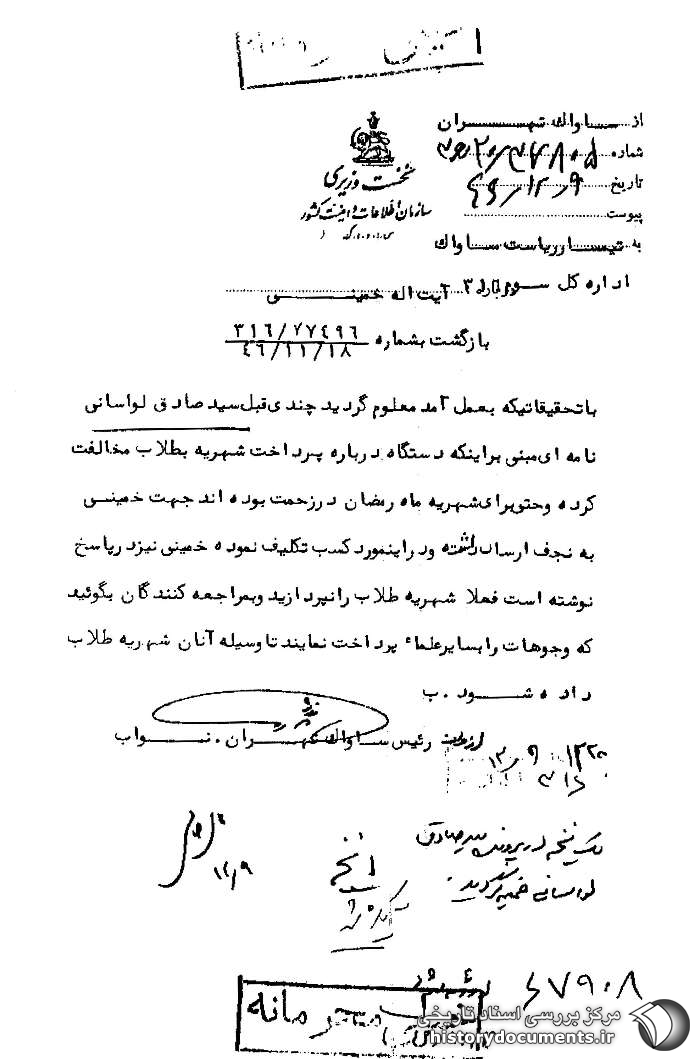 از ساواك تهـــران
شماره ۲۰/۳۴۸۰۵ ه‍ ۳
تاریخ ۴۶/۱۲/۹
پیوست
نخست وزیری
سازمان اطلاعات و امنیت کشور
به تیمسار ریاست ساواك
اداره کل سوم
آیت اله خمینـــی
بازگشت بشماره ۳۱۶/۷۷۴۹۶
۴۶/۱۱/۱۸
با تحقیقاتیکه بعمل آمد معلوم گردید چندی قبل سید صادق لواسانی
نامه ای مبنی براینکه دستگاه درباره پرداخت شهریه بطلاب مخالفت
کرده وحتی برای شهریه ماه رمضان درزحمت بوده اند جهت خمینی
به نجف ارسال داشته و در اینمورد کسب تکلیف نموده خمینی نیز در پاسخ
نوشته است فعلا شهریه طلاب را نپردازید و بمراجعه کنندگان بگوئید
که وجوهات را بسایر علماء پرداخت نمایند تا وسیله آنان شهریه طلاب
داده شـــود . ب
رئیس ساواك تهـــران . نـــواب
یک نسخه در پرونده سید صادق
لواسانی ضمیمه گردید.
۱۲/۹
۶۷۹۰۸
محرمانه
مرکز بررسی اسناد تاریخی
historydocuments.ir